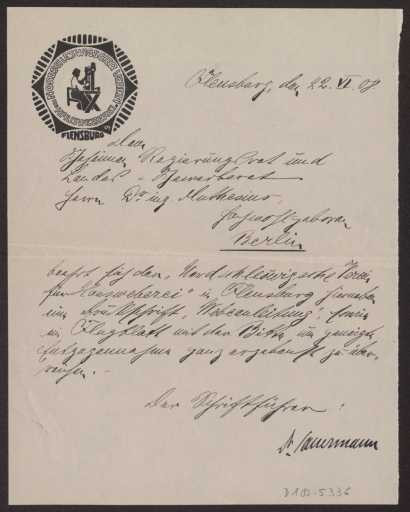 FLENSBURG
Flensburg, den 22. VI. 08
Dem
Geheimen Regierungsrat und
Landes-Gewerberat
Herrn Dr ing Muthesius,
Hochwohlgeboren
Berlin
beehrt sich der „Nordschleswigsche Verein
für Hausweberei" in Flensburg hierneben
eine Druckschrift, „Webeanleitung", sowie
ein Flugblatt mit der Bitte um geneigte
Entgegennahme ganz ergebenst zu über-
reichen. -
Der Schriftführer:
Dr. Sauermann
D 102-5336